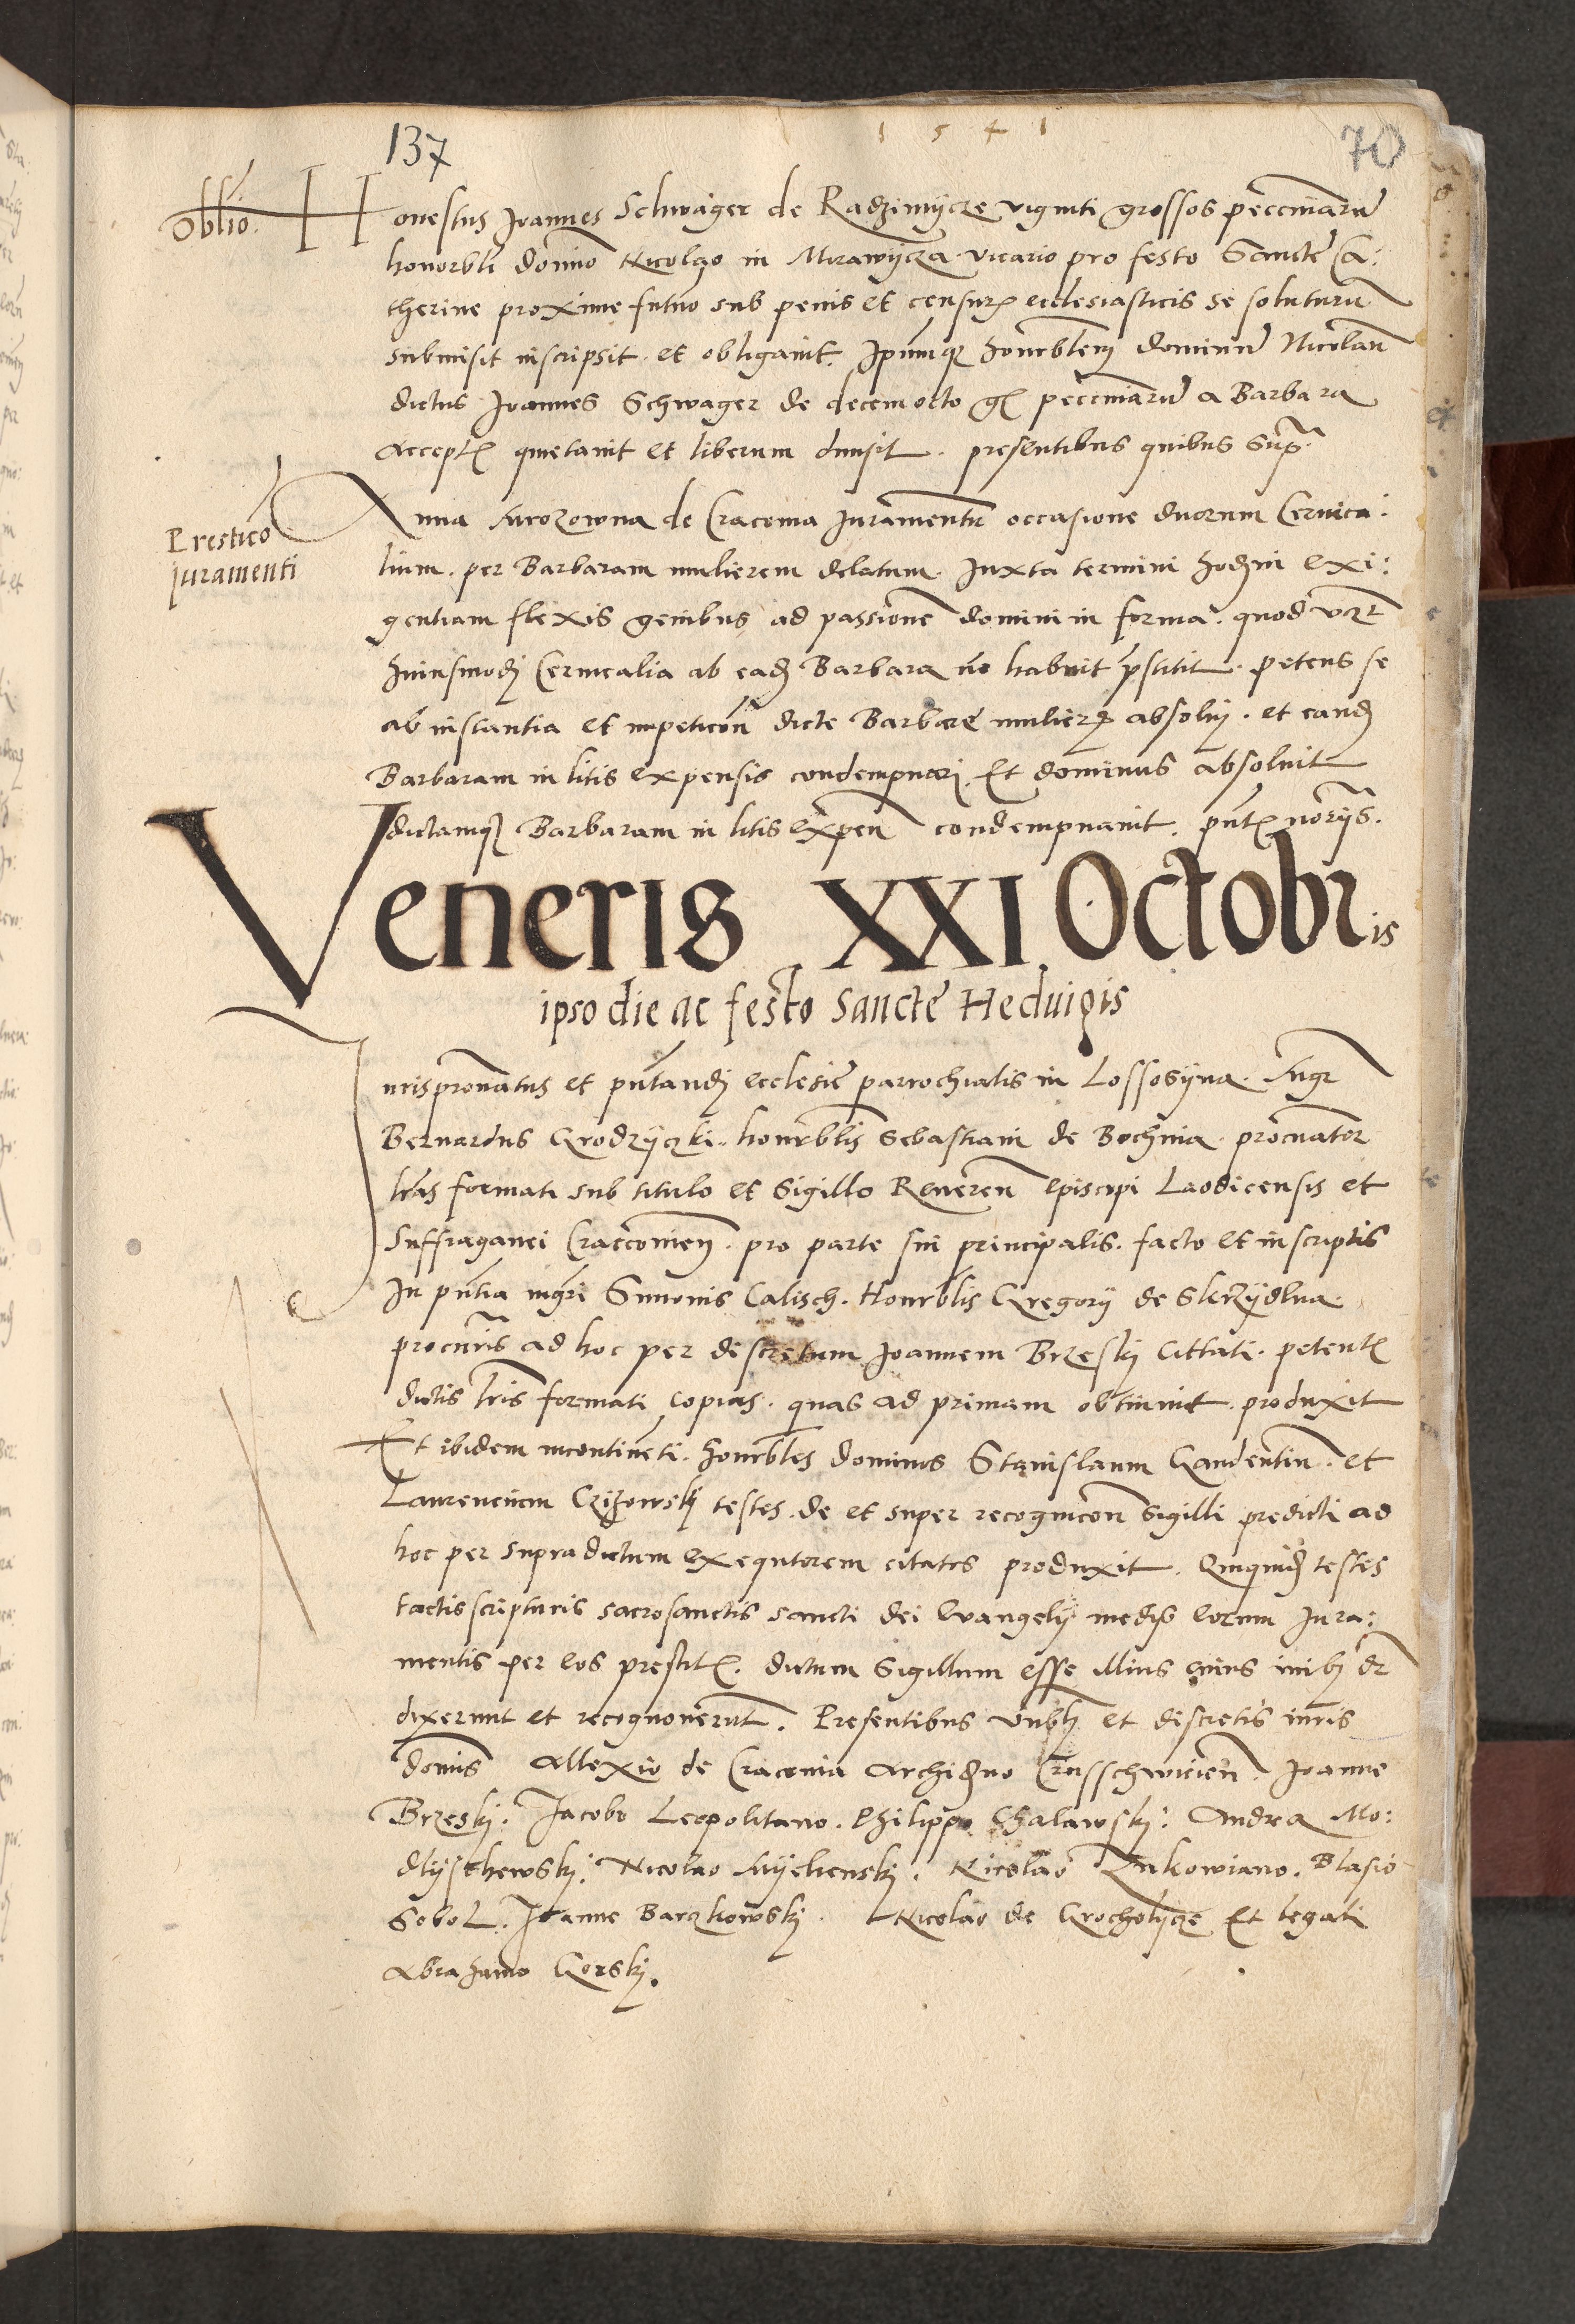 1 5 4 1
137
70
Oblio.
Honestus Joannes Schwager de Radzimycze viginti grossos peccuniarū
honorbli domīo Nicolao in Mrawycza vicario pro festo Sancte Ca:
therine proxime futuro sub penis et censuris ecclesiasticis se soluturū
submisit inscripsit et obligauit. Ipūmque honorblem dominū Nicolaū
dictus Joannes Schwager de decem octo g peccuniarū a Barbara
accept quietauit et liberum dimisit. presentibus quibus supra.
Prestico
juramenti
Anna de Cracouia Juramentū occasione duorum Ceruica:
lium. per Barbaram mulierem delatum. Juxta termini hodierni exi:
gentiam flexis genibus ad passionē domini in forma. quod
huiusmodi Ceruicalia ab ead Barbara nō habuit prestitit. petens se
ab instantia et impeticōn dicte Barbare mulieris absolui. et eand
Barbaram in litis expensis condempnari. Et dominus absoluit
dictamque Barbaram in litis expen condempnauit. pntibus norijs.
Veneris XXI Octobris
ipso die ac festo Sancte Heduigis
Jurispronatus et pntandi ecclesie parrochialis in Lossosyna. Mgr
Bernardus Grodzyczki. honorblis Sebastiani de Bochnia. procuator
lras formati sub titulo et Sigillo Reueren Episcopi Laodicensis et
Suffraganei Craccouien. pro parte sui principalis. facto et in scriptis
In pntia mgri Simonis Calisch. Honorblis Gregorij de Skrzydlna.
procuris ad hoc per discretum Joannem Brzeski Cittati. petent
dictis lris formati copias. quas ad primam obtinuit. produxit
Et ibidem incontinēti. honorbles dominos Stanislaum Gaudentin. et
Laurencium Czizowski testes. de et super recognicōn Sigilli predicti ad
hoc per supradictum exequtorem citatos produxit. Quiquid testes
tactis scripturis sacrosanctis sancti dei Euangelij medijs eorum Jura:
mentis per eos prestit. dictum Sigillum esse illius cuius inibi dr
dixerunt et recognouerūt. Presentibus Vnblibus et discretis viris
dominis Allexio de Cracouia Archidno Crusschwicien. Joanne
Brzeski. Jacobo Leopolitano. Philippo Chalawski. Andrea Mo:
dlyschewski. Nicolao Mychenski. Nicolao Zukowiano. Blasio
Sobol. Joanne Barczkowski. Nicolao de Grocholycze Et legati
Abrahamo Gorski.